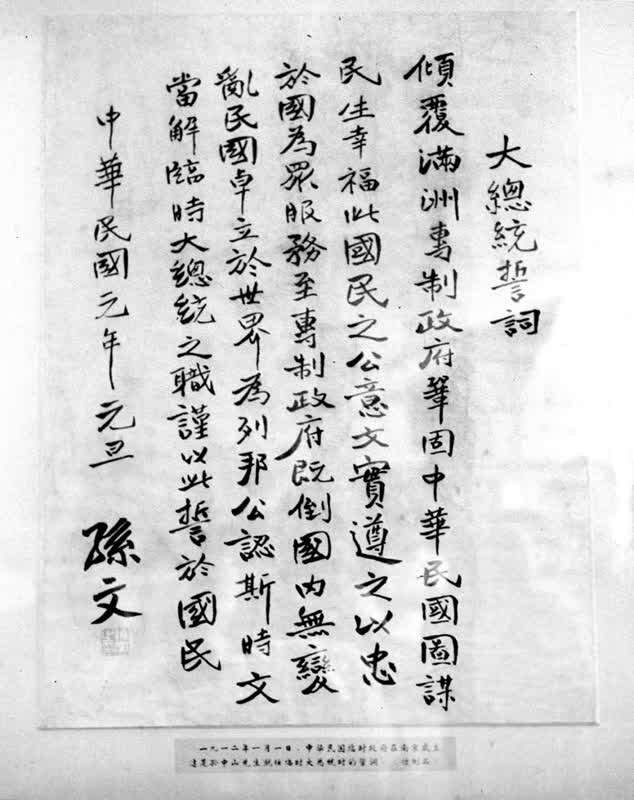 大總統誓詞
傾覆滿洲專制政府鞏固中華民國圖謀
民生幸福此國民之公意文實遵之以忠
於國為眾服務至專制政府既倒國內無變
亂民國卓立於世界為列邦公認斯時文
當解臨時大總統之職謹以此誓於國民
中華民國元年元旦
孫文
一九一二年一月一日，中华民国临时政府在南京成立
这是孙中山先生就任临时大总统时的誓词